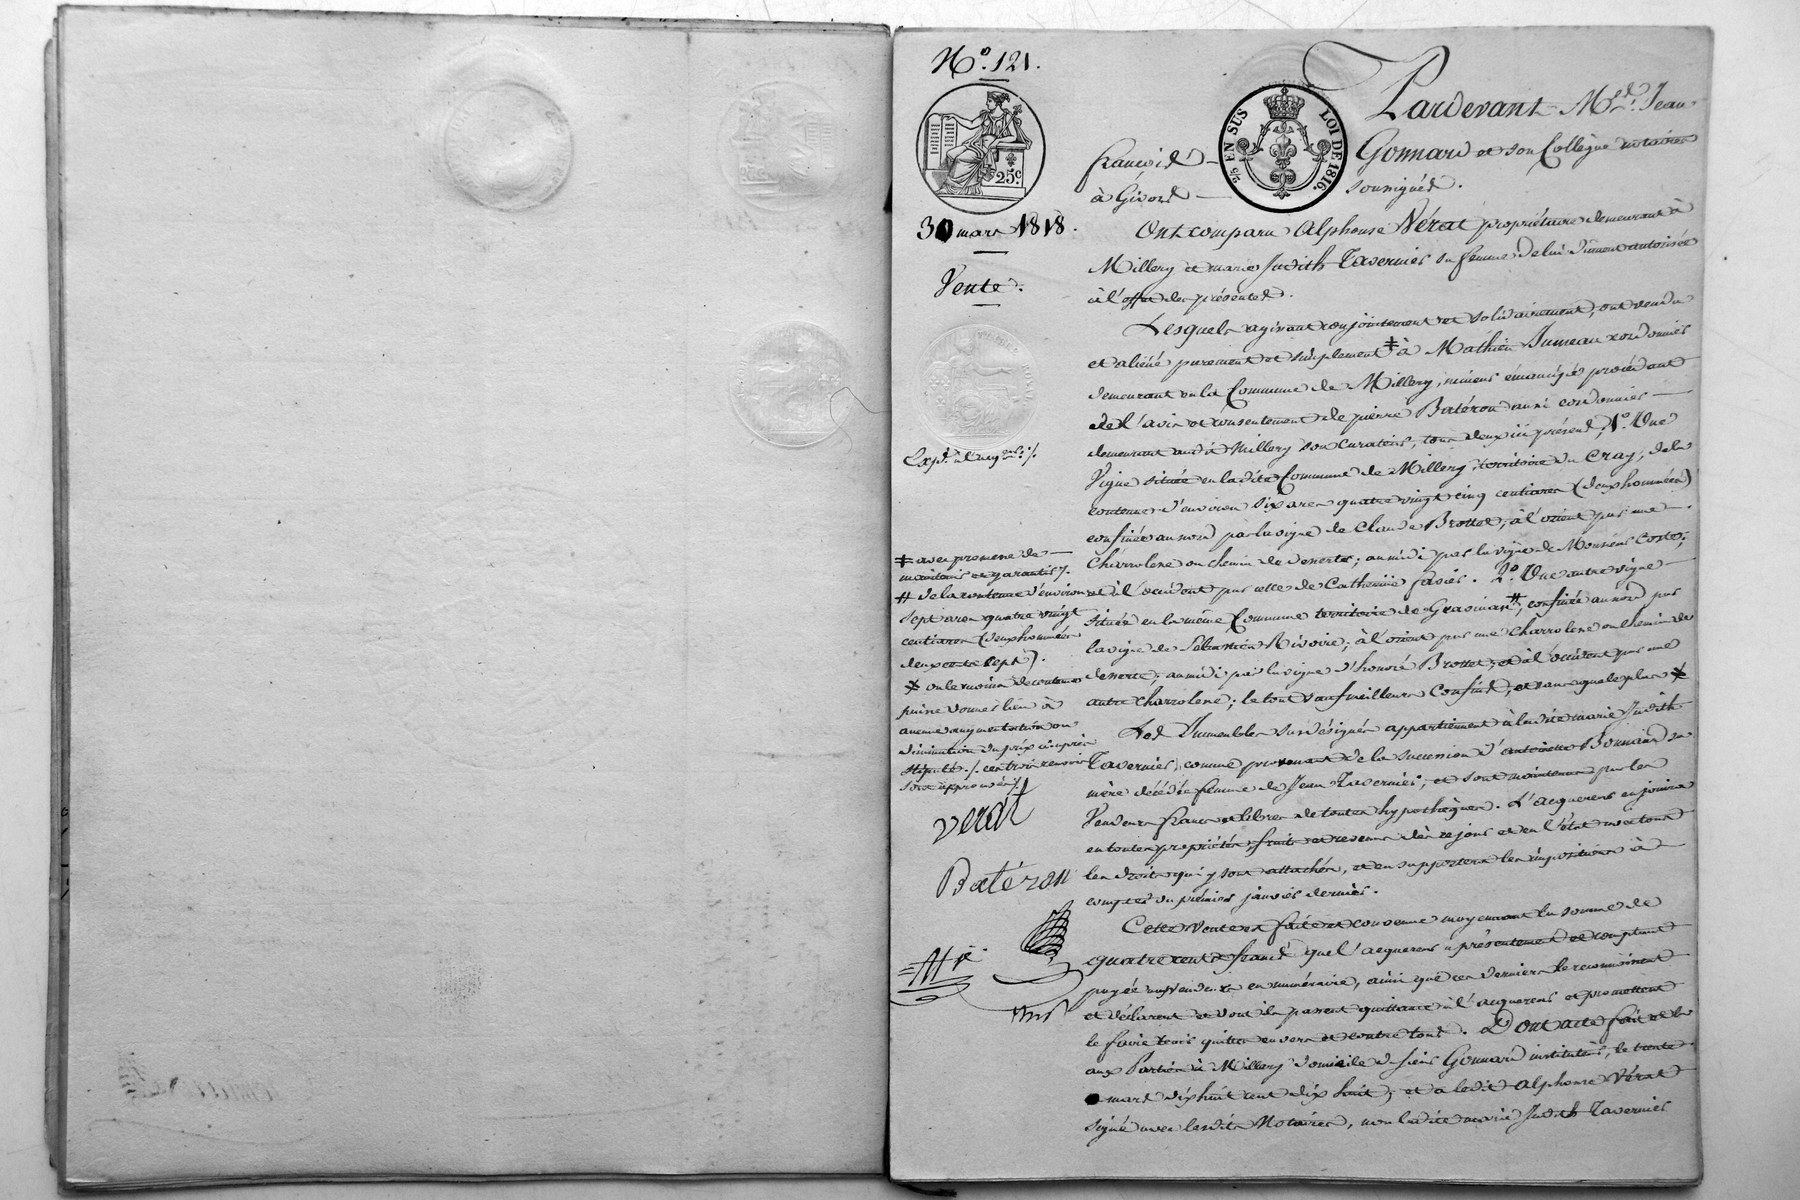 N.º 121.
25.c
25 EN SUS LOI DE 1816.
30 mars 1818.
Vente.
Pardevant M.d Jean
françois Gonnard et son Collègue notaires
à Givors soussignés.
Ont comparu Alphonse Vérat propriétaire demeurant à
Millery et marie Judith Tavernier sa femme de lui dûment autorisée
à l'effet des présentes.
Lesquels agissant conjointement et solidairement, ont vendu
et aliéné purement et simplement ǂ à Mathieu Jumeau cordonnier
demeurant en la Commune de Millery, mineur émancipé procédant
de l'avis et consentement de pierre Batéron aussi cordonnier
demeurant audit Millery son curateur, tous deux ici présents, 1.º Une
Vigne située en ladite Commune de Millery, territoire du Cray, de la
contenue d'environ six ares quatre vingt cinq centiares (deux hommées)
confinée au nord par la vigne de Claude Brottet, à l'orient par une
charrolerie ou chemin de desserte; au midi par la vigne de Monsieur Coste;
et à l'occident par celle de Catherine favier. 2.º Une autre vigne
située en la même Commune territoire de Grasinar #, confinée au nord par
la vigne de Sébastien Rivoire; à l'orient par une charrolerie ou chemin de
desserte; au midi par la vigne d'honoré Brottet; et à l'occident par une
autre charrolerie; le tout sauf meilleurs Confins, et sans que le plus *
Les Immeubles sus désignés appartiennent à ladite marie Judith
Tavernier, comme provenant de la succession d'antoinette Bonnard sa
mère décédée femme de Jean Tavernier; et sont maintenus par les
Vendeurs francs et libres de toutes hypothèques. L'acquéreur en jouira
en toutes propriétés fruits et revenus dès ce jour et en l'état avec tous
les droits qui y sont attachés, et en supportera les impositions à
compter du premier janvier dernier.
Cette Vente est faite et convenue moyennant la somme de
quatre cents francs que l'acquéreur a présentement et comptant
payée aux Vendeurs en numéraire, ainsi que ces derniers le reconnaissent
et déclarent et dont ils passent quittance à l'acquéreur et promettent
le faire tenir quitte envers et contre tous. Dont acte fait et lu
aux Parties à Millery domicile du sieur Gonnard instituteur, le trente
mars dix huit cent dix huit; et a ledit Alphonse Vérat
signé avec lesdits Notaires, non ladite marie Judith Tavernier
Exp.d à l'acq.r
ǂ avec promesse de
maintenir et garantir /.
# de la contenue d'environ
sept ares quatre vingt
centiares (deux hommées
deux cents sept).
* ou le moins de contenue
puisse donner lieu à
aucune augmentation ou
diminution du prix ci-après
stipulé. /. ces trois renvois
sont approuvés /.
verat
Batéron